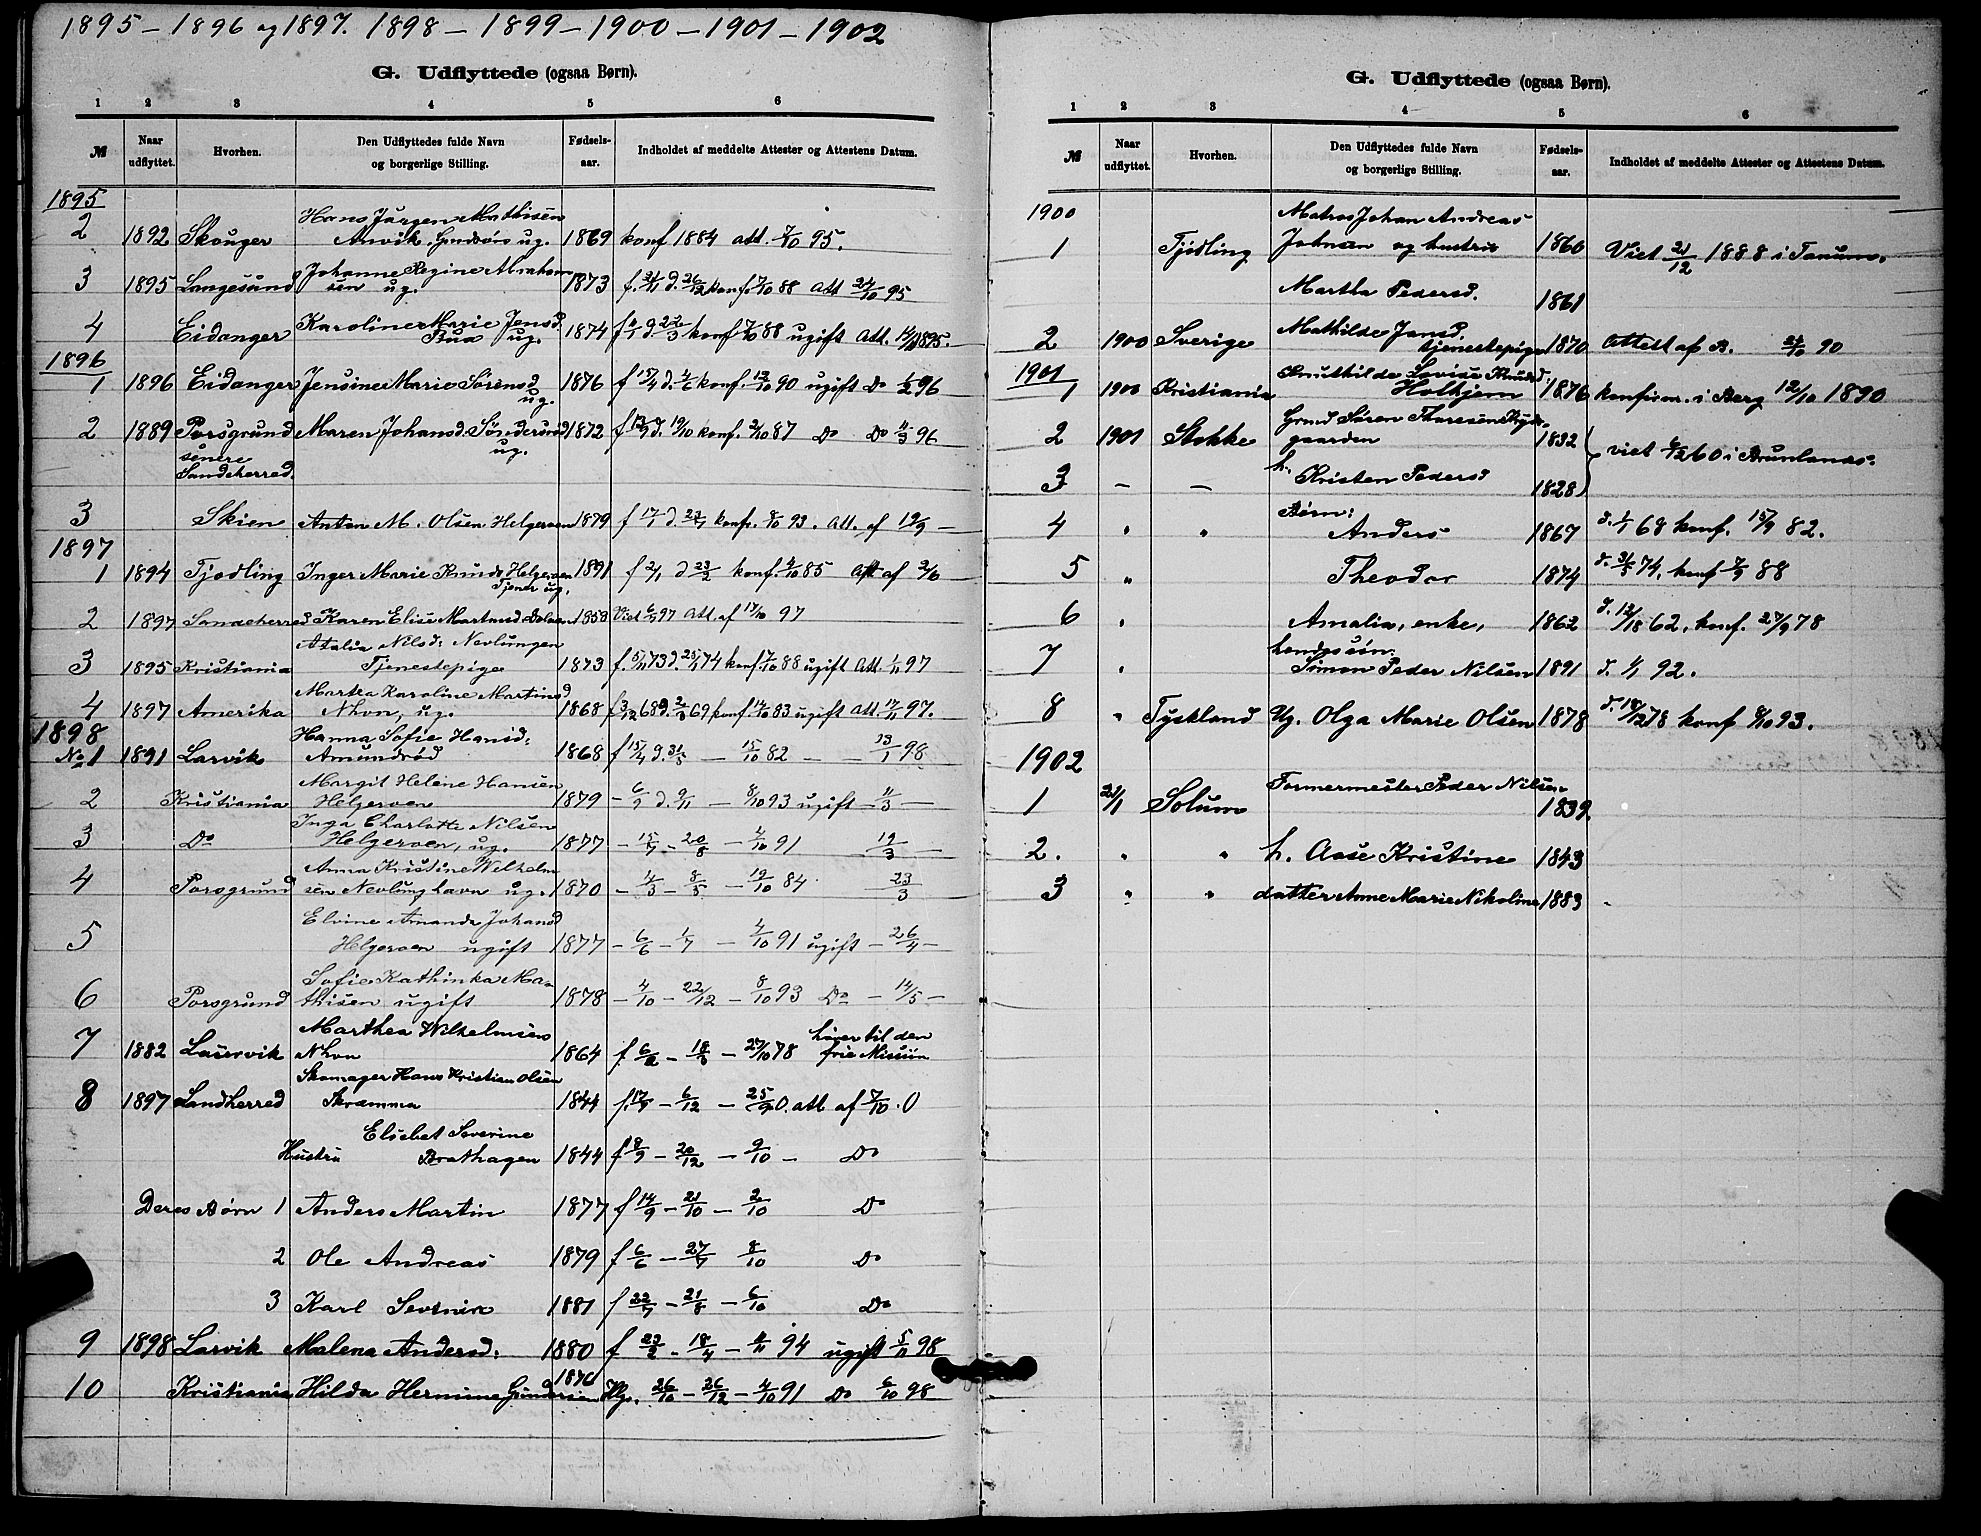 1895 – 1896 og 1897. 1898 – 1899 – 1900 – 1901 – 1902
G. Udflyttede (ogsaa Børn).
1 2 3 4 5 6
№ Naar udflyttet. Hvorhen. Den Udflyttedes fulde Navn og borgerlige Stilling. Fødselsaar. Indholdet af meddelte Attester og Attestens Datum.
1895
Hans Jørgen Mathisen
2 1892 Skouger Anvik, ug. 1869 konf 1884 att. 7/10 95.
Johanne Regine Abraham
3 1895 Langesund sen ug. 1873 konf. 7/10 88 att 24/10 95
Karoline Marie Jensd.
4 Eidanger Bua ug. 1874 konf 7/10 88 ugift att. 1895.
1896
1 1896 Eidanger Jensine Marie Sørensd 1876 f 15/4 d. 4/6 konf. 12/10 90 ugift Do 96
ug.
2 1889 Porsgrund Maren Johansd. 1872 d. 19/10 konf. 2/10 87 Do Do 11/3 96
senere ug.
Sandeherred.
3 Skien Anton M. Olsen Helgeroen 1879 f 17/1 d. konf. 8/10 93. att. af 19/9 –
1897
1 1894 Tjodling Inger Marie Knuds. Helgeroen 1891 f 2/1 d 23/2 konf. 4/10 85 att af 2/6
Tjener ug.
2 1897 Karen Elise 1858 Viet 6/4 97 att. af 17/10 97
Atalia Nilsd. Nevlungen
3 1895 Kristiania Tjenestepige 1873 73 d. 25/1 74 konf. 7/10 88 ugift att. 97
Martha Karoline Martinsd
4 1897 Amerika Nhvn, ug. 1868 f 3/12 68 d. 69 konf. 14/10 83 ugift att. 17/11 97.
1898
Hanna Sofie Hansd.
No 1 1891 Larvik Amundrød 1868 f 15/4 d. 31/5 – 15/10 82 – – 13/1 98
Margit Helene Hansen
2 Kristiania Helgeroen 1879 – 6/9 d. 9/11 – 8/10 93 ugift – 11/3 –
Inga Charlotte Nilsen
3 Do Helgeroen, ug. 1877 – 15/7 – 20/8 – 4/10 91 19/3 –
Anna Kristine Wilhelm
4 Porsgrund sen Nevlunghavn ug. 1870 – 4/3 – 8/5 – 19/10 84 23/3
Elvine Amanda Johansd
5 Helgeroen ugift 1877 – 6/6 – 1/7 – 4/10 91 ugift – 26/4 –
Sofie Kathinka Ma-
6 Porsgrund thisen ugift 1878 – 4/10 – 22/12 – 8/10 93 Do – 14/5 –
Marthea Wilhelmsens hører til den
7 1882 Laurvik Nhvn 1864 f. – 18/3 – 27/10 78 frie Mission
Skomager Hans Kristian Olsen
8 1897 Sandherred Skramma 1844 f. 17/9 – 6/12 – att af 7/10 .0
Elsebet Severine
Hustru Brathagen 1844 f 8/9 – 20/12 – 9/10 – Do
Deres Børn 1 Anders Martin 1877 f 14/9 – 21/10 – 2/10 Do
2 Ole Andreas 1879 f 6/6 – 27/7 8/10 Do
3 Karl Severin 1881 f 22/7 – 21/8 – 6/10 Do
9 1898 Larvik Malena Andersd. 1880 f 23/2 – 18/4 – 94 ugift 5/11 98
10 Kristiania Hilda Hermine Gundersen 1876 26/10 – 26/12 – 4/10 91 Do 6/10 98
G. Udflyttede (ogsaa Børn).
1 2 3 4 5 6
№ Naar udflyttet. Hvorhen. Den Udflyttedes fulde Navn og borgerlige Stilling. Fødselsaar. Indholdet af meddelte Attester og Attestens Datum.
1900 Matros Johan Andreas
1 Tjidling Johnsen og hustru 1860 Viet 21/12 1888 i Tanum.
Martha Pedersd. 1861
Mathilde Jansd.
2 1900 Sverige tjenestepige 1870 Attest af 90
1901 Lovise Knudsd.
1 1900 Kristiania Holtjern 1876 konfirm. i Berg 12/10 1890
Søren Thoresen
2 1901 Stokke gaarden 1832 viet 60 i Brunlanæs.
3 – – h. Kristen Pedersd 1828
Børn:
4 " " Anders 1867 d. 1/1 68 konf. 15/9 82.
5 " Theodor 1874 d. 31/5 74, konf 7/9 88
6 " Amalia, enke, 1862 62, konf. 78
hendes søn:
7 " Simon Peder Nilsen 1891 d. 92.
8 " Tyskland Ug. Olga Marie Olsen 1878 78 konf 8/10 93.
1902
Formermester Peder Nilsen
1 21/1 Solum 1839
2. " " h. Aase Kristine 1843
3 " " datter Anne Marie Nikoline 1883